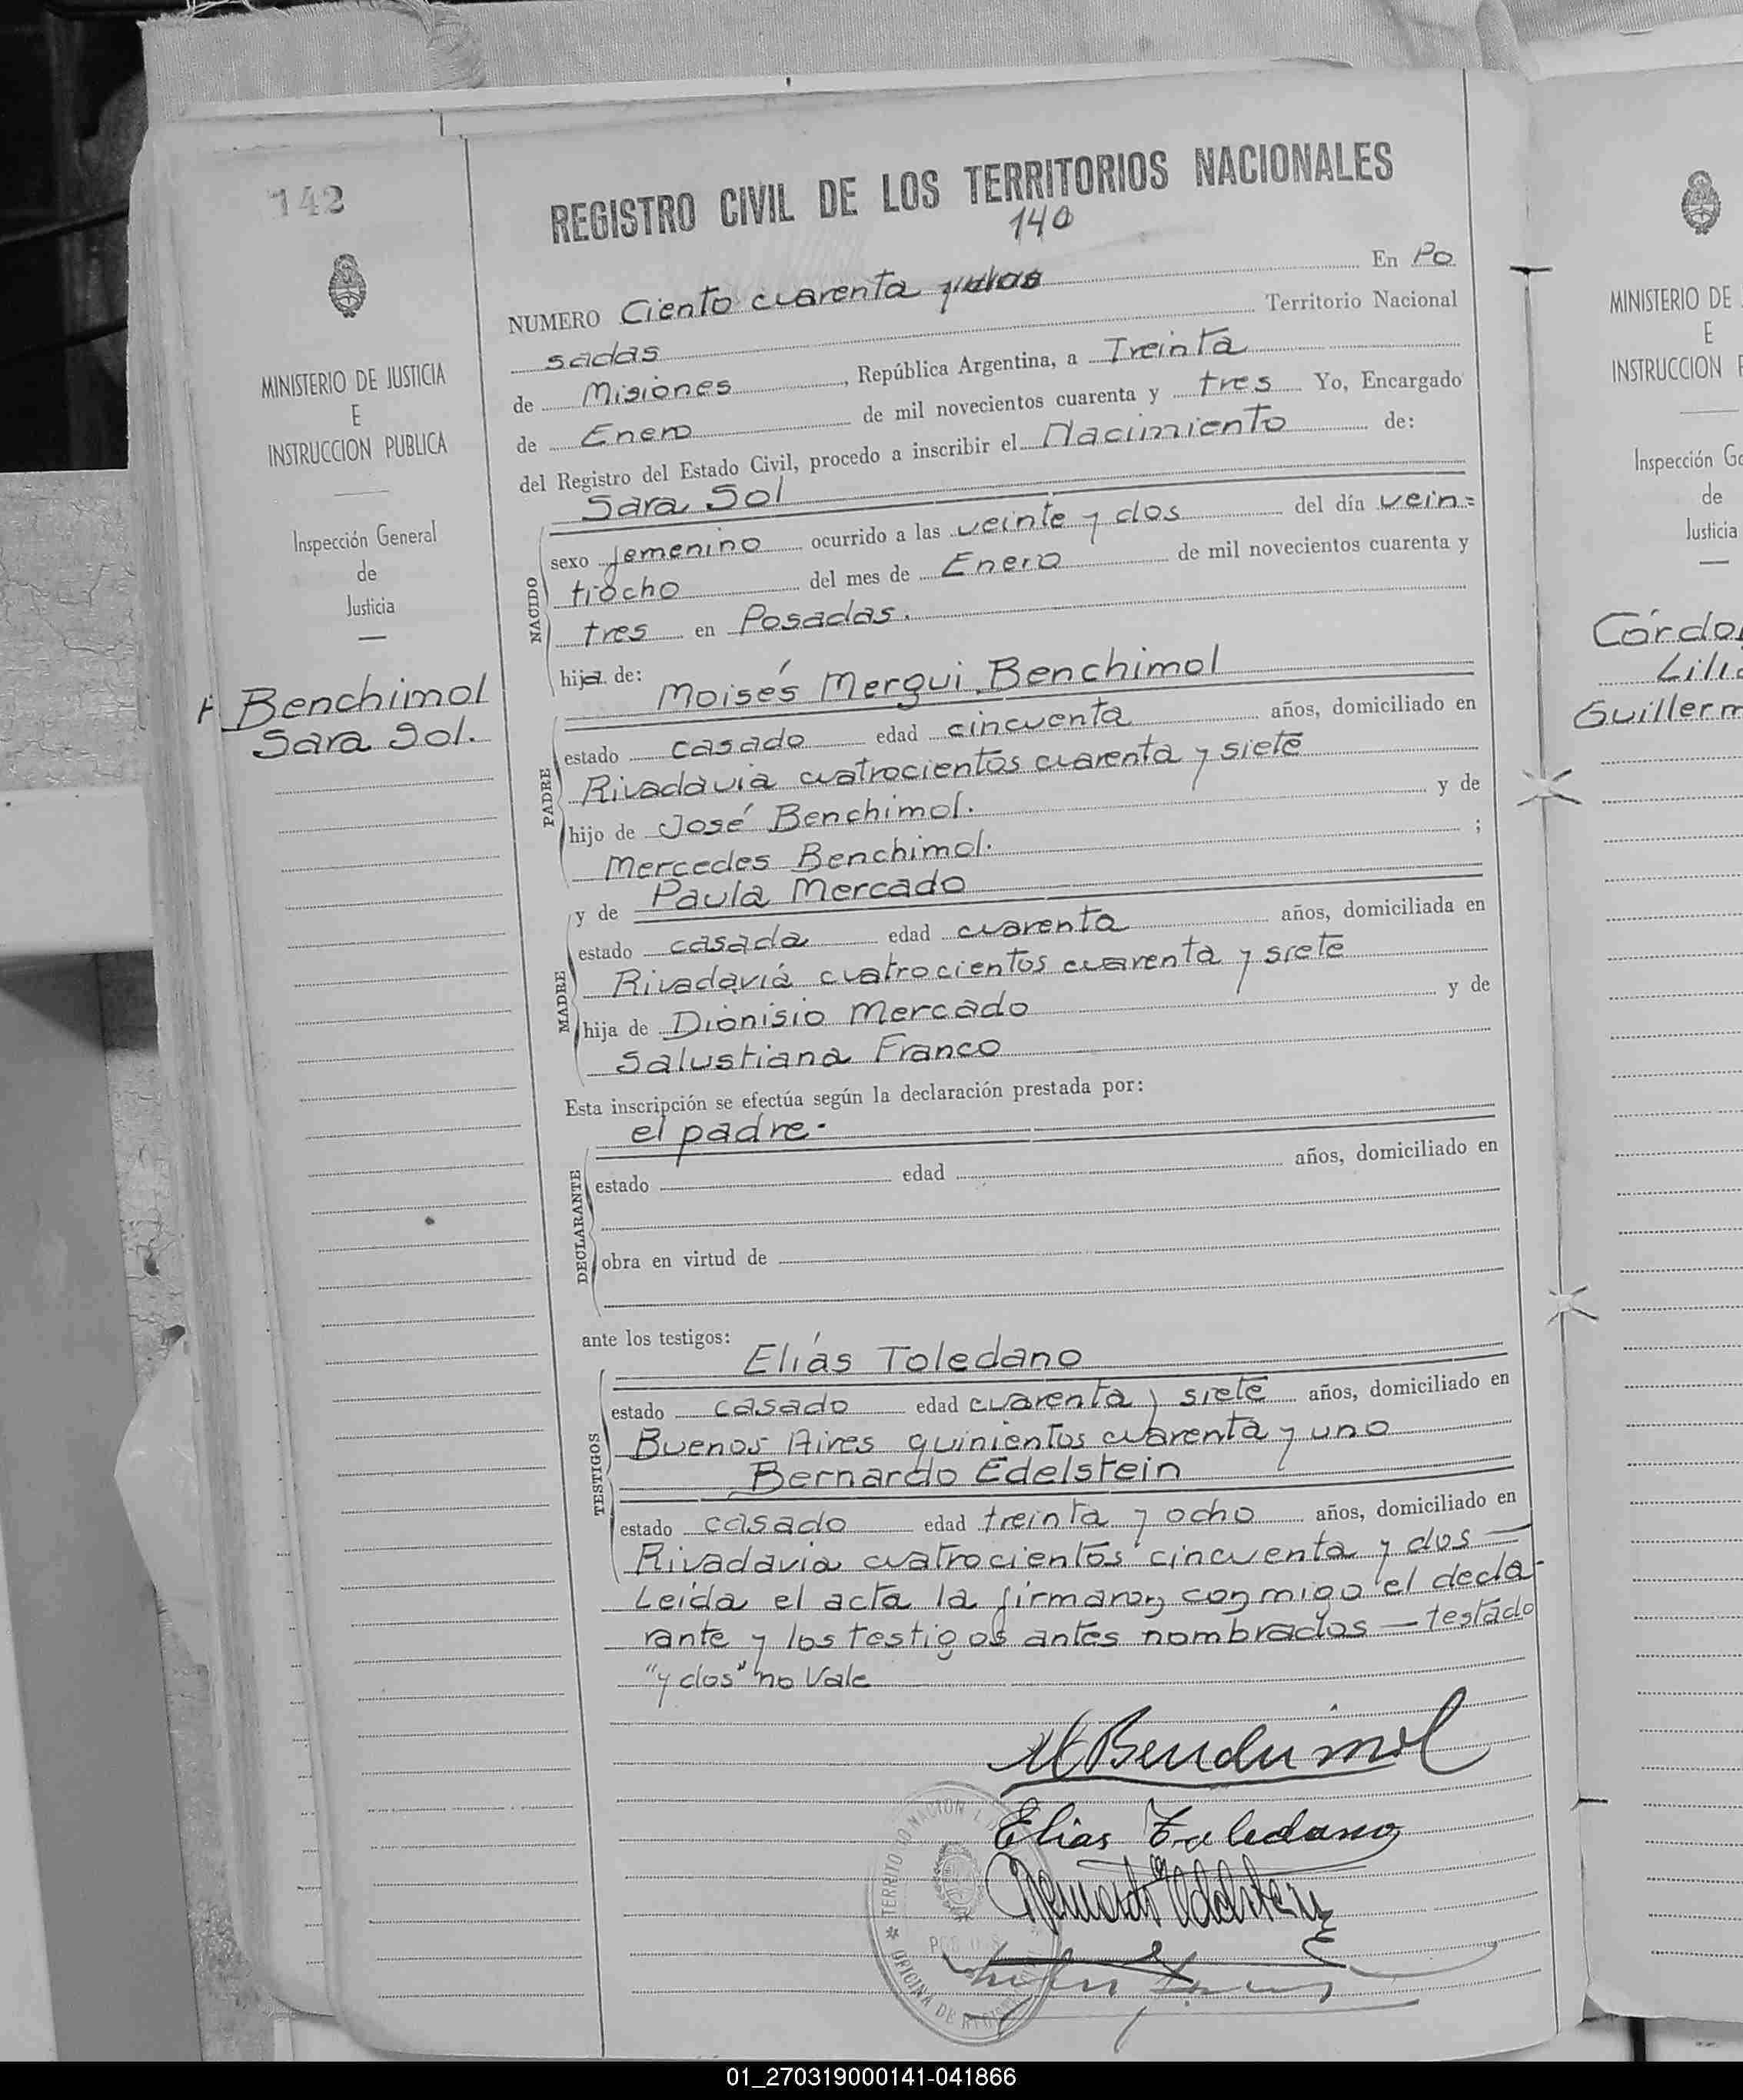 142
MINISTERIO DE JUSTICIA
E
INSTRUCCION PUBLICA
Inspección General
de
Justicia
Benchimol
Sara Sol.
REGISTRO CIVIL DE LOS TERRITORIOS NACIONALES
140
NUMERO Ciento cuarenta y dos En Po
sadas Territorio Nacional
de Misiones, República Argentina, a Treinta
de Enero de mil novecientos cuarenta y tres Yo, Encargado
del Registro del Estado Civil, procedo a inscribir el Nacimiento de:
Sara Sol
NACIDO
sexo femenino ocurrido a las veinte y dos del día vein=
tiocho del mes de Enero de mil novecientos cuarenta y
tres en Posadas.
hija de: Moisés Mergui Benchimol
PADRE
estado casado edad cincuenta años, domiciliado en
Rivadavia cuatrocientos cuarenta y siete
hijo de José Benchimol. y de
Mercedes Benchimol. ;
y de Paula Mercado
MADRE
estado casada edad cuarenta años, domiciliada en
Rivadavia cuatrocientos cuarenta y siete
hija de Dionisio Mercado y de
Salustiana Franco
Esta inscripción se efectúa según la declaración prestada por:
el padre.
DECLARANTE
estado edad años, domiciliado en
obra en virtud de
ante los testigos:
Elías Toledano
TESTIGOS
estado casado edad cuarenta y siete años, domiciliado en
Buenos Aires quinientos cuarenta y uno
Bernardo Edelstein
estado casado edad treinta y ocho años, domiciliado en
Rivadavia cuatrocientos cincuenta y dos —
Leída el acta la firmaron conmigo el decla-
rante y los testigos antes nombrados — testado
"y dos" no Vale
M Benchimol
Elias Toledano
Bernardo Edelstein
TERRITORIO NACIONAL
OFICINA DE REGISTRO
MINISTERIO DE
E
INSTRUCCION
Inspección
de
Justicia
Guillerm
01_270319000141-041866